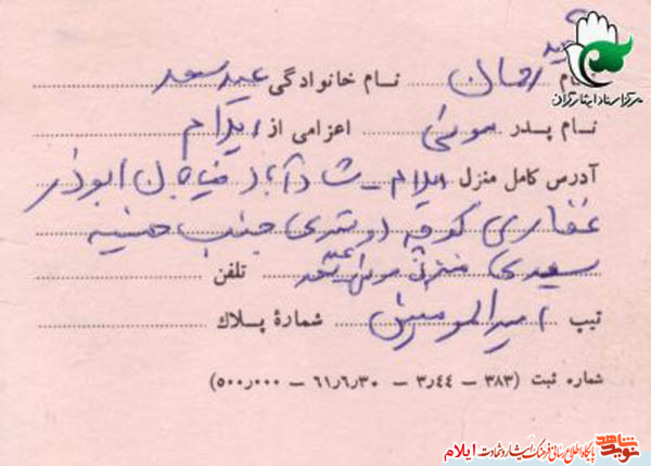 شهید
نام رحمان نام خانوادگی عبدی سعد
مرکز اسناد ایثارگران
نام پدر موسی اعزامی از ایلام
آدرس کامل منزل ایلام - شادآباد خیابان ابوذر
غفاری کوچه دوستدی جنب حسینیه
سعیدی منزل موسی تلفن
تیپ امیرالمومنین شمارهٔ پلاک
شماره ثبت (۳۸۳ – ۳٫۴۴ – ۶۱٫۶٫۳۰ – ۵۰۰٫۰۰۰)
نوید شاهد پایگاه اطلاع رسانی فرهنگ ایثار و شهادت ایلام